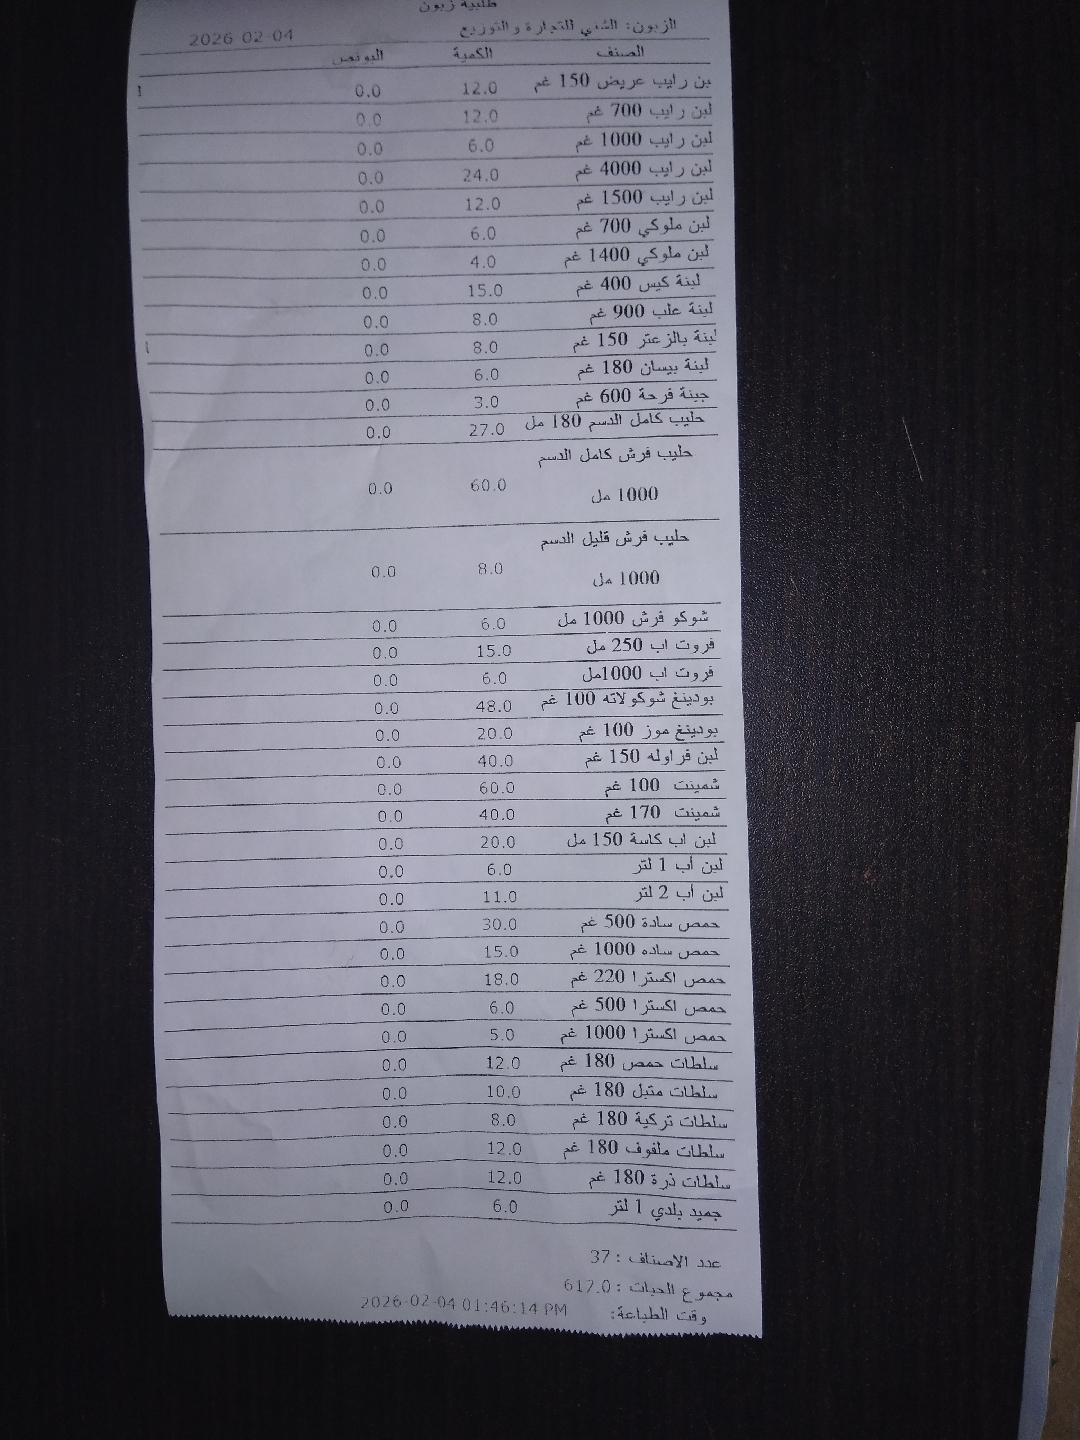 طلبية زبون
الزبون: الشني للتجارة والتوزيع 2026-02-04
الصنف الكمية البونص
بن رايب عريض 150 غم 12.0 0.0
لبن رايب 700 غم 12.0 0.0
لبن رايب 1000 غم 6.0 0.0
لبن رايب 4000 غم 24.0 0.0
لبن رايب 1500 غم 12.0 0.0
لبن ملوكي 700 غم 6.0 0.0
لبن ملوكي 1400 غم 4.0 0.0
لبنة كيس 400 غم 15.0 0.0
لبنة علب 900 غم 8.0 0.0
لبنة بالزعتر 150 غم 8.0 0.0
لبنة بيسان 180 غم 6.0 0.0
جبنة فرحة 600 غم 3.0 0.0
حليب كامل الدسم 180 مل 27.0 0.0
حليب فرش كامل الدسم
1000 مل 60.0 0.0
حليب فرش قليل الدسم
1000 مل 8.0 0.0
شوكو فرش 1000 مل 6.0 0.0
فروت اب 250 مل 15.0 0.0
فروت اب 1000مل 6.0 0.0
بودينغ شوكولاته 100 غم 48.0 0.0
بودينغ موز 100 غم 20.0 0.0
لبن فراوله 150 غم 40.0 0.0
شمينت 100 غم 60.0 0.0
شمينت 170 غم 40.0 0.0
لبن اب كاسة 150 مل 20.0 0.0
لبن أب 1 لتر 6.0 0.0
لبن أب 2 لتر 11.0 0.0
حمص سادة 500 غم 30.0 0.0
حمص ساده 1000 غم 15.0 0.0
حمص اكسترا 220 غم 18.0 0.0
حمص اكسترا 500 غم 6.0 0.0
حمص اكسترا 1000 غم 5.0 0.0
سلطات حمص 180 غم 12.0 0.0
سلطات متبل 180 غم 10.0 0.0
سلطات تركية 180 غم 8.0 0.0
سلطات ملفوف 180 غم 12.0 0.0
سلطات ذرة 180 غم 12.0 0.0
جميد بلدي 1 لتر 6.0 0.0
عدد الاصناف : 37
مجموع الحبات : 617.0
وقت الطباعة: 2026-02-04 01:46:14 PM